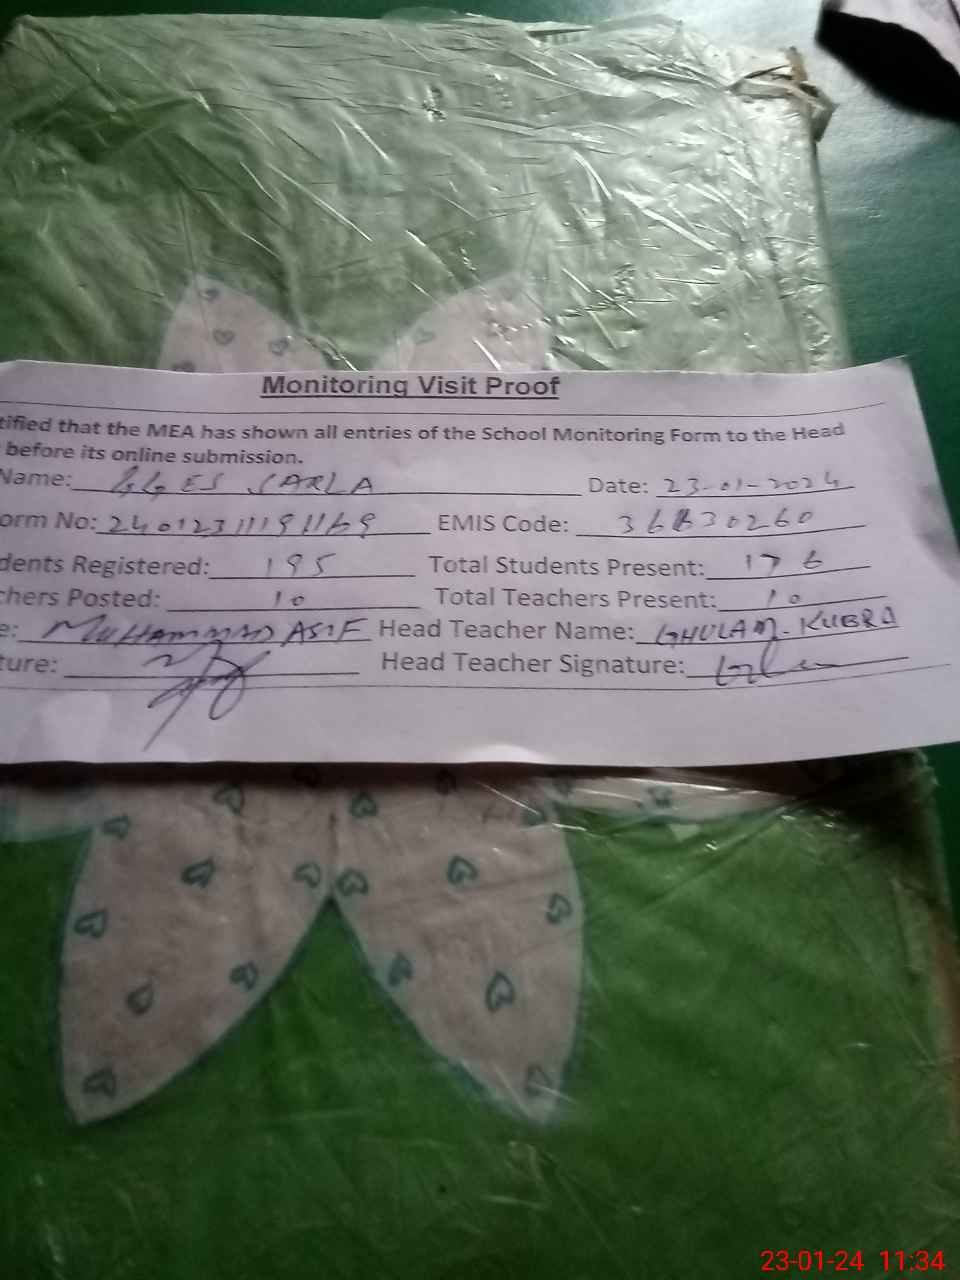 Monitoring Visit Proof
tified that the MEA has shown all entries of the School Monitoring Form to the Head
before its online submission.
Name: GGES SARLA Date: 23-01-2024
orm No: EMIS Code:
dents Registered: 195 Total Students Present: 176
chers Posted: 10 Total Teachers Present: 10
e: MUHAMMAD ASIF Head Teacher Name: GHULAM. KUBRA
ture: Head Teacher Signature:
23-01-24 11:34